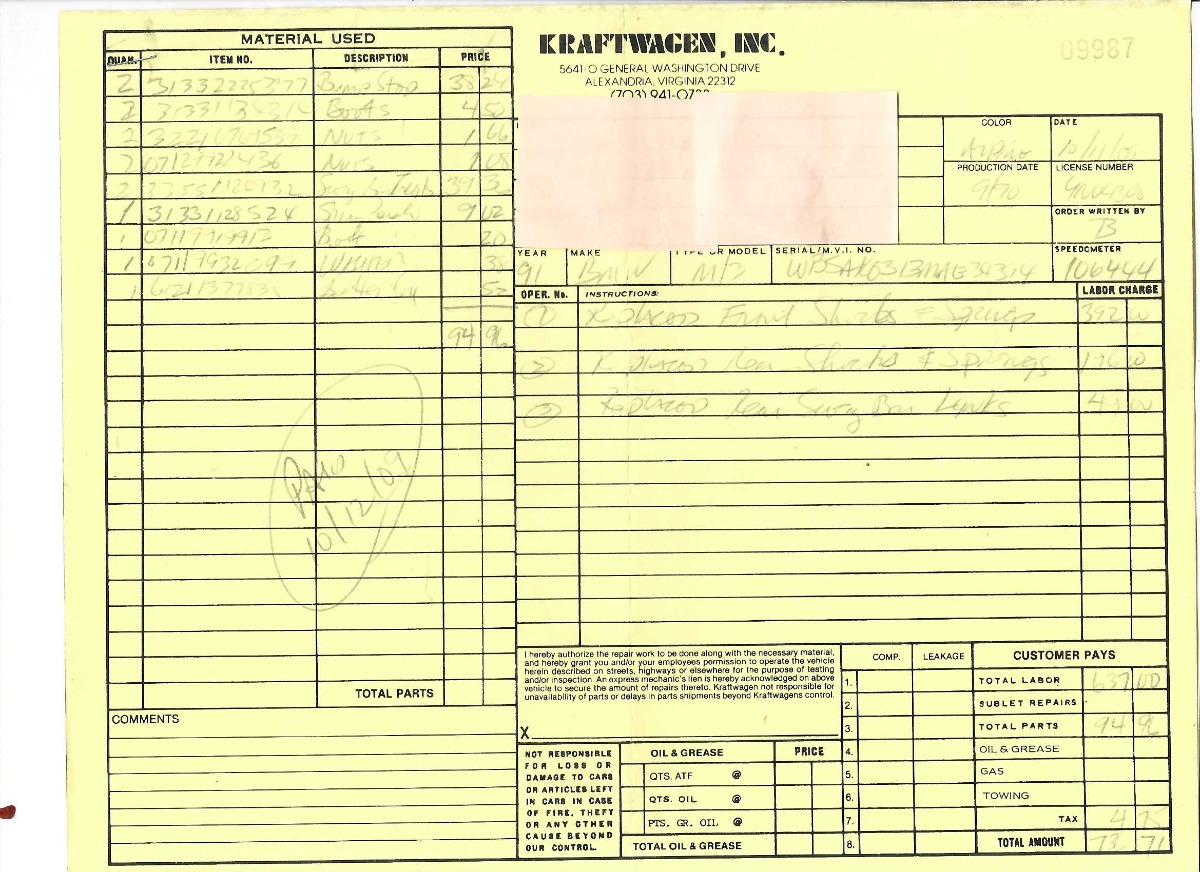 MATERIAL USED
QUAN. ITEM NO. DESCRIPTION PRICE
2 Bump Stop 38 24
2 Boots 4 50
2 Nuts 1 66
2 07129922436 Nuts
2 39
1 31331128524 9 02
1 07119919913 Bolt 20
1 38
1
94 96
PAID
10/12/09
TOTAL PARTS
COMMENTS
KRAFTWAGEN, INC.
5641-O GENERAL WASHINGTON DRIVE
ALEXANDRIA, VIRGINIA 22312
(703) 941-07
09987
COLOR DATE
Alpine
PRODUCTION DATE LICENSE NUMBER
9/90
ORDER WRITTEN BY
B
YEAR MAKE OR MODEL SERIAL/M.V.I. NO. SPEEDOMETER
91 BMW 106444
OPER. No. INSTRUCTIONS: LABOR CHARGE
1 Replaced Front Shocks & Springs 392 00
2 Replaced Rear Shocks & Springs 196 00
3 Replaced Rear Sway Bar Links
I hereby authorize the repair work to be done along with the necessary material,
and hereby grant you and/or your employees permission to operate the vehicle
herein described on streets, highways or elsewhere for the purpose of testing
and/or inspection. An express mechanic's lien is hereby acknowledged on above
vehicle to secure the amount of repairs thereto. Kraftwagen not responsible for
unavailability of parts or delays in parts shipments beyond Kraftwagens control.
X
NOT RESPONSIBLE
FOR LOSS OR
DAMAGE TO CARS
OR ARTICLES LEFT
IN CARS IN CASE
OF FIRE, THEFT
OR ANY OTHER
CAUSE BEYOND
OUR CONTROL.
OIL & GREASE PRICE
QTS. ATF @
QTS. OIL @
PTS. GR. OIL @
TOTAL OIL & GREASE
COMP. LEAKAGE
1.
2.
3.
4.
5.
6.
7.
8.
CUSTOMER PAYS
TOTAL LABOR 637 00
SUBLET REPAIRS
TOTAL PARTS 94 96
OIL & GREASE
GAS
TOWING
TAX 4 75
TOTAL AMOUNT 71